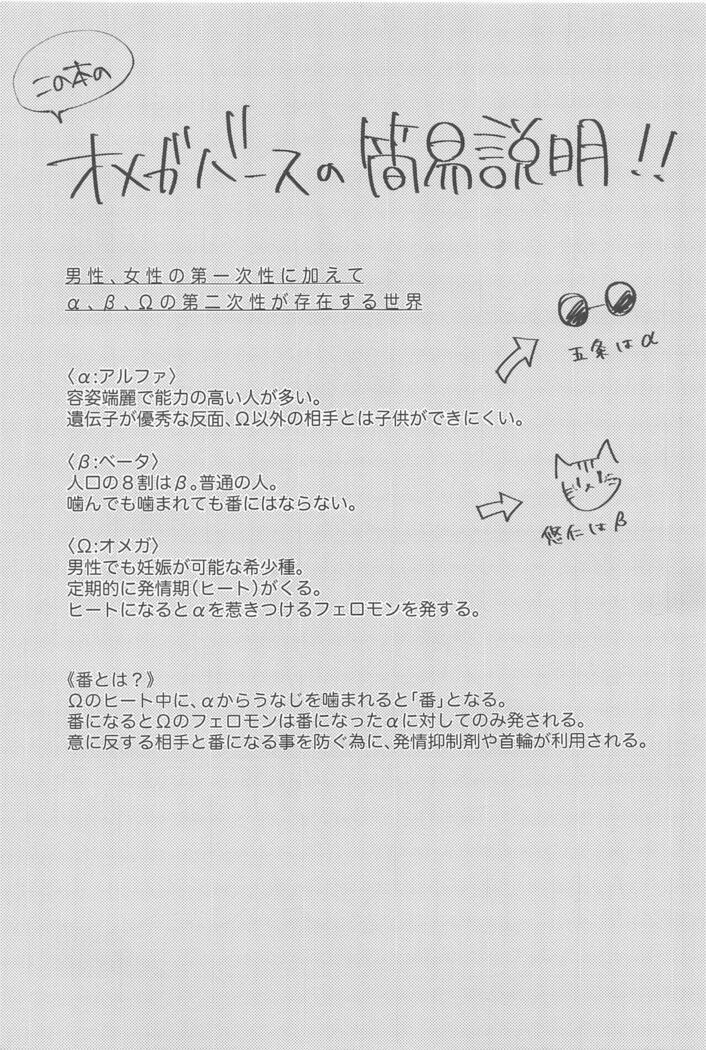 この本の
オメガバースの簡易説明!!
男性、女性の第一次性に加えて
α、β、Ωの第二次性が存在する世界
五条はα
〈α:アルファ〉
容姿端麗で能力の高い人が多い。
遺伝子が優秀な反面、Ω以外の相手とは子供ができにくい。
〈β:ベータ〉
人口の8割はβ。普通の人。
噛んでも噛まれても番にはならない。
悠仁はβ
〈Ω:オメガ〉
男性でも妊娠が可能な希少種。
定期的に発情期(ヒート)がくる。
ヒートになるとαを惹きつけるフェロモンを発する。
《番とは?》
Ωのヒート中に、αからうなじを噛まれると「番」となる。
番になるとΩのフェロモンは番になったαに対してのみ発される。
意に反する相手と番になる事を防ぐ為に、発情抑制剤や首輪が利用される。